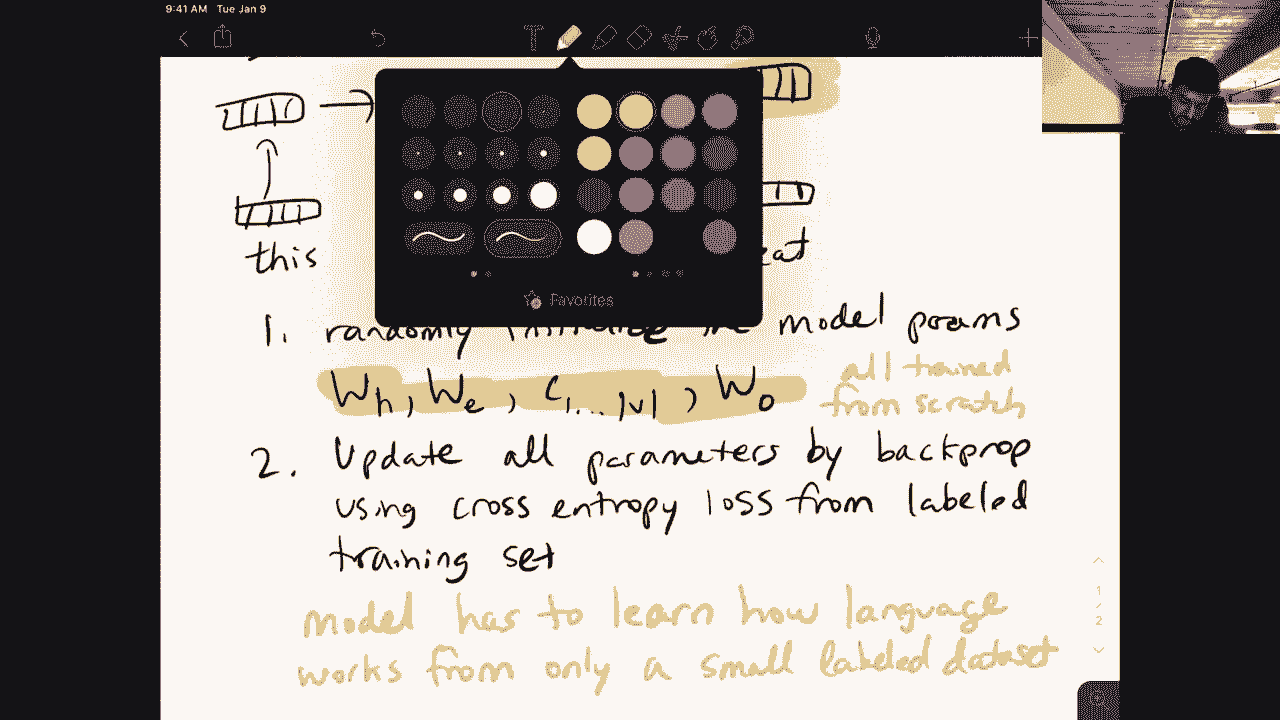 9:41 AM Tue Jan 9
T
Favorites
this
1. randomly initialize the model params
Wh, We, C1...|V|, Wo
all trained
from scratch
2. Update all parameters by backprop
using cross entropy loss from labeled
training set
model has to learn how language
works from only a small labeled dataset
1
/
2